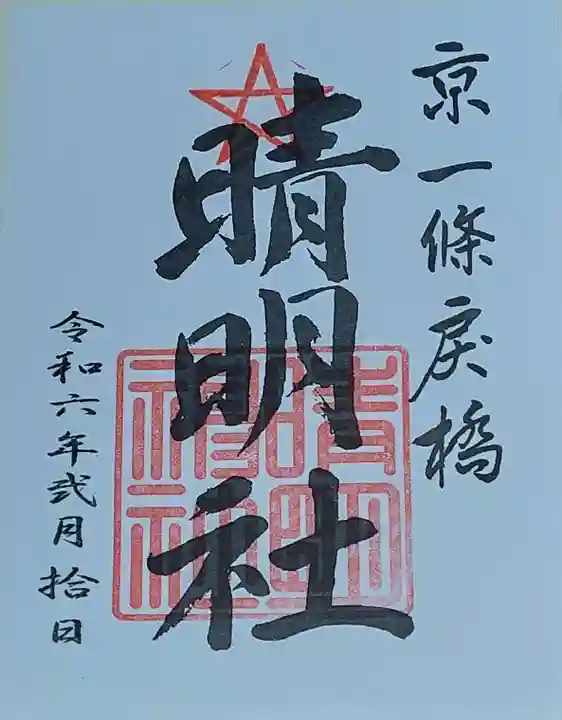 京一條戻橋
晴明社
晴明
神社
令和六年弐月拾日